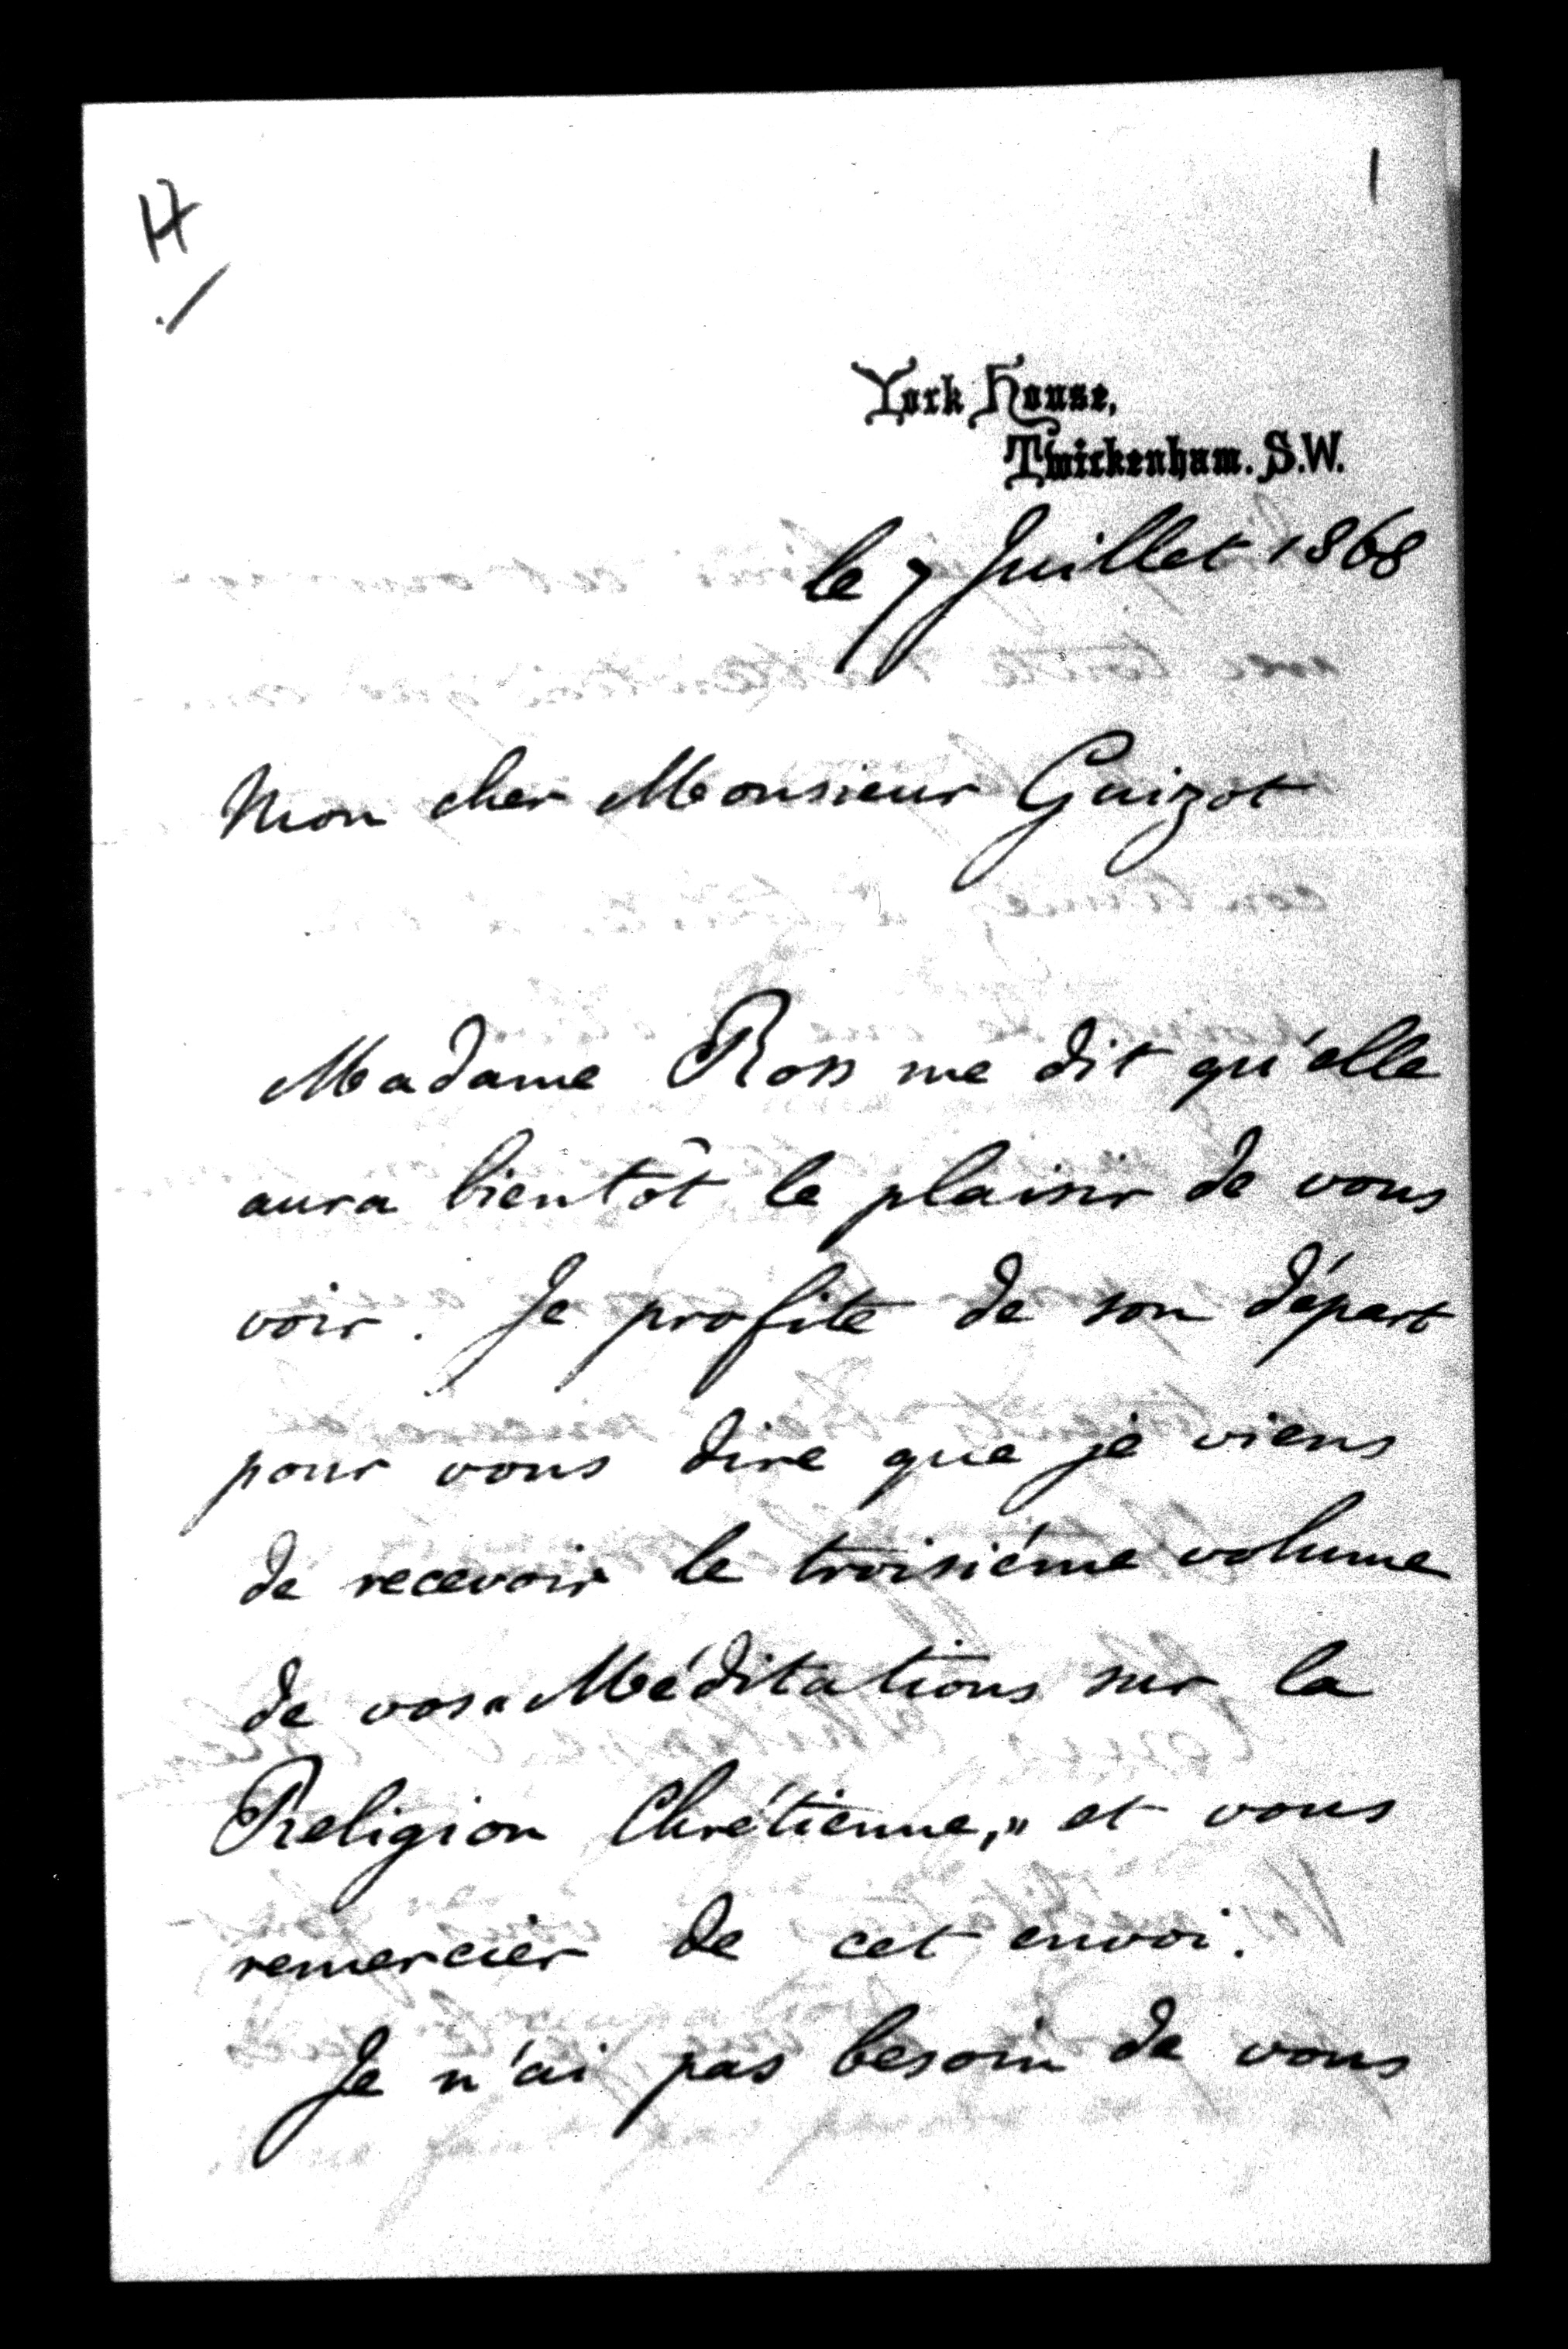 17
1
York House,
Twickenham. S.W.
le 7 Juillet 1868
Mon cher Monsieur Guizot
Madame Ross me dit qu'elle
aura bientôt le plaisir de vous
voir. Je profite de son départ
pour vous dire que je viens
de recevoir le troisième volume
de vos " Méditations sur la
Religion Chrétienne, " et vous
remercier de cet envoi.
Je n'ai pas besoin de vous